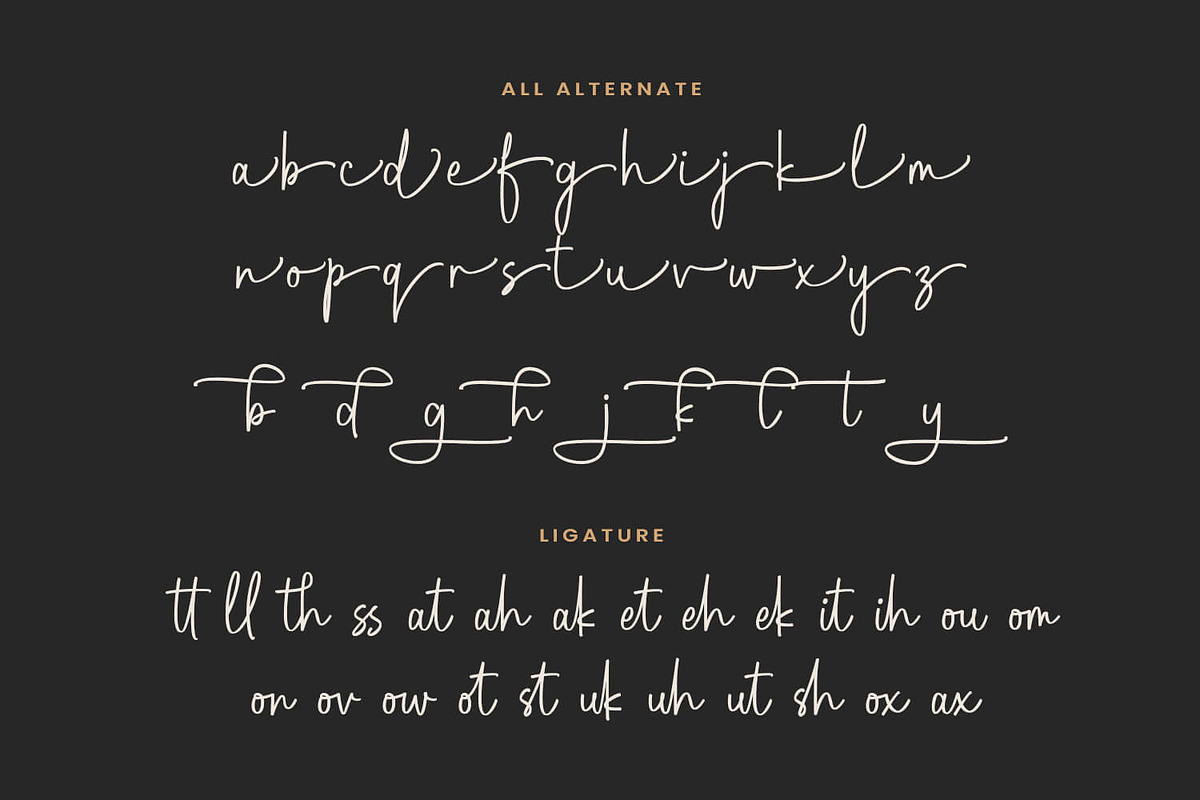 ALL ALTERNATE
abcdefghijklm
nopqrstuvwxyz
b d g h j k l t y
LIGATURE
tt ll th ss at ah ak et eh ek it ih ou om
on ov ow ot st uk uh ut sh ox ax